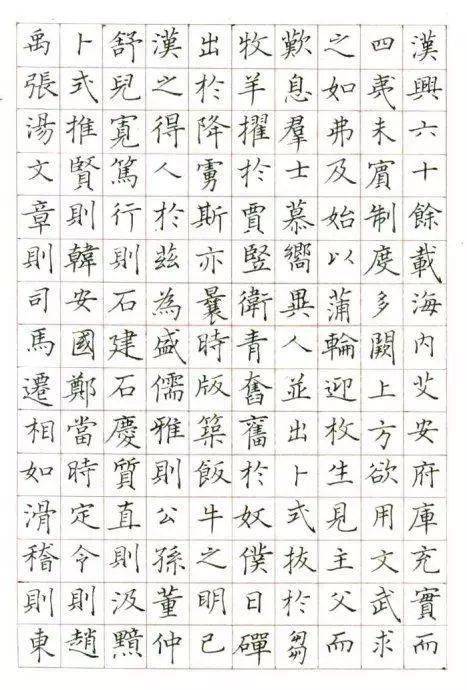 漢興六十餘載海內艾安府庫充實而
四夷未賓制度多闕上方欲用文武求
之如弗及始以蒲輪迎枚生見主父而
歎息羣士慕嚮異人並出卜式拔於芻
牧羊擢於賈竪衛青奮舊於奴僕日磾
出於降虜斯亦曩時版築飯牛之明已
漢之得人於茲為盛儒雅則公孫董仲
舒兒寬篤行則石建石慶質直則汲黯
卜式推賢則韓安國鄭當時定令則趙
禹張湯文章則司馬遷相如滑稽則東